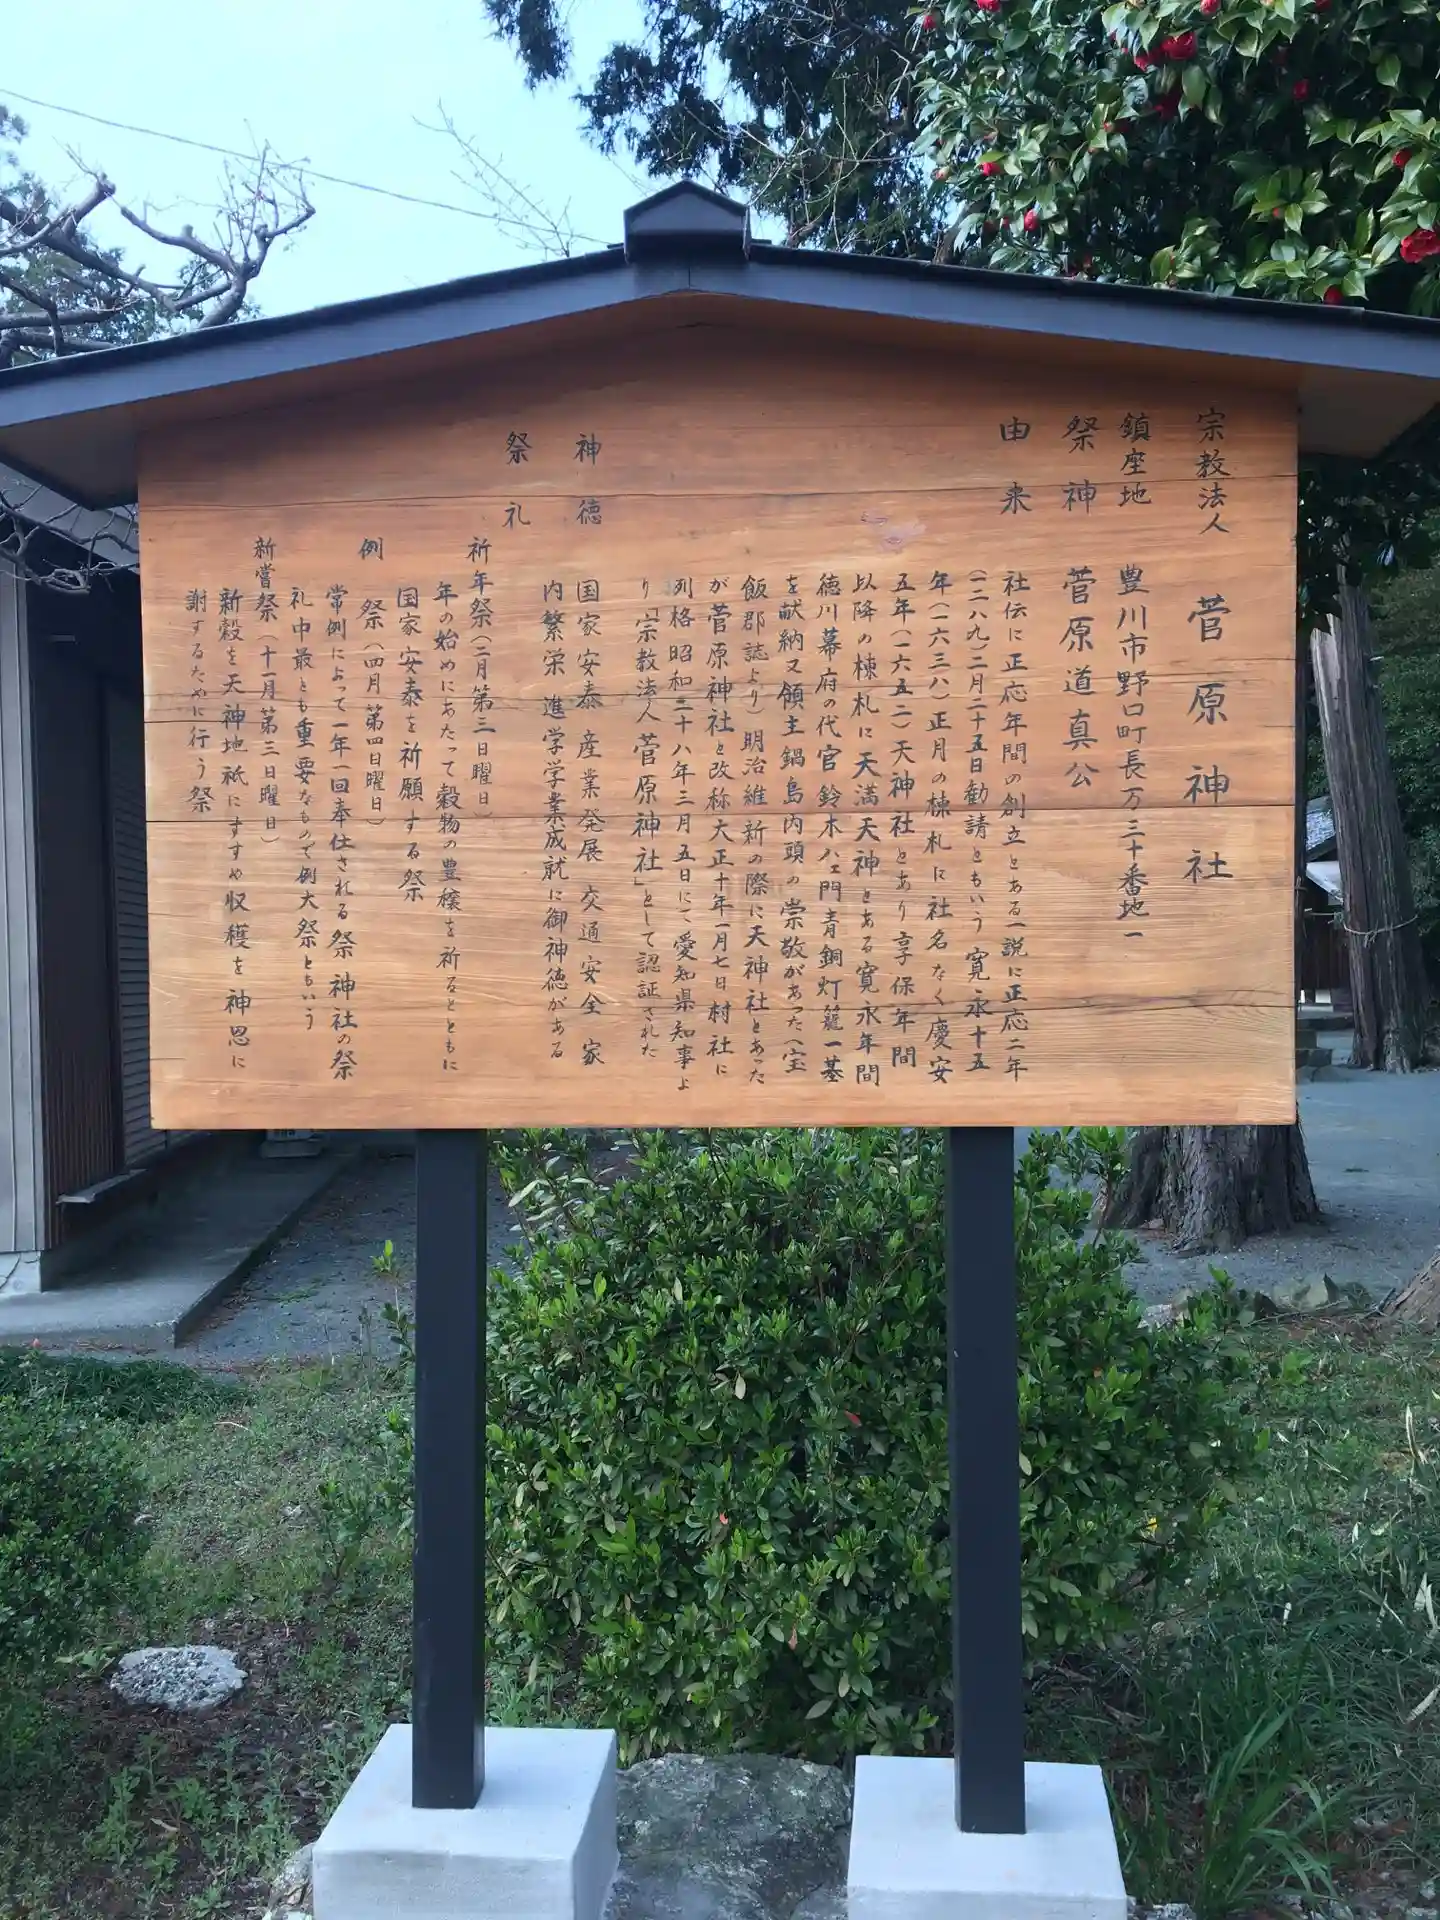 宗教法人 菅原神社
鎮座地 豊川市野口町長万三十番地一
祭神 菅原道真公
由来 社伝に正応年間の創立とある一説に正応二年
(一二八九)二月二十五日勧請ともいう寛永十五
年(一六三八)正月の棟札に社名なく慶安
五年(一六五二)天神社とあり享保年間
以降の棟札に天満天神とある寛永年間
徳川幕府の代官鈴木八ェ門青銅灯籠一基
を献納又領主鍋島内頭の崇敬があった(宝
飯郡誌より)明治維新の際に天神社とあった
が菅原神社と改称大正十年一月七日村社に
列格昭和二十八年三月五日にて愛知県知事よ
り「宗教法人菅原神社」として認証された
神徳 国家安泰 産業発展 交通安全 家
内繁栄 進学学業成就に御神徳がある
祭礼
祈年祭(二月第三日曜日)
年の始めにあたって穀物の豊穣を祈るとともに
国家安泰を祈願する祭
例祭(四月第四日曜日)
常例によって一年一回奉仕される祭神社の祭
礼中最とも重要なもので例大祭ともいう
新嘗祭(十一月第三日曜日)
新穀を天神地祇にすすめ収穫を神恩に
謝するために行う祭